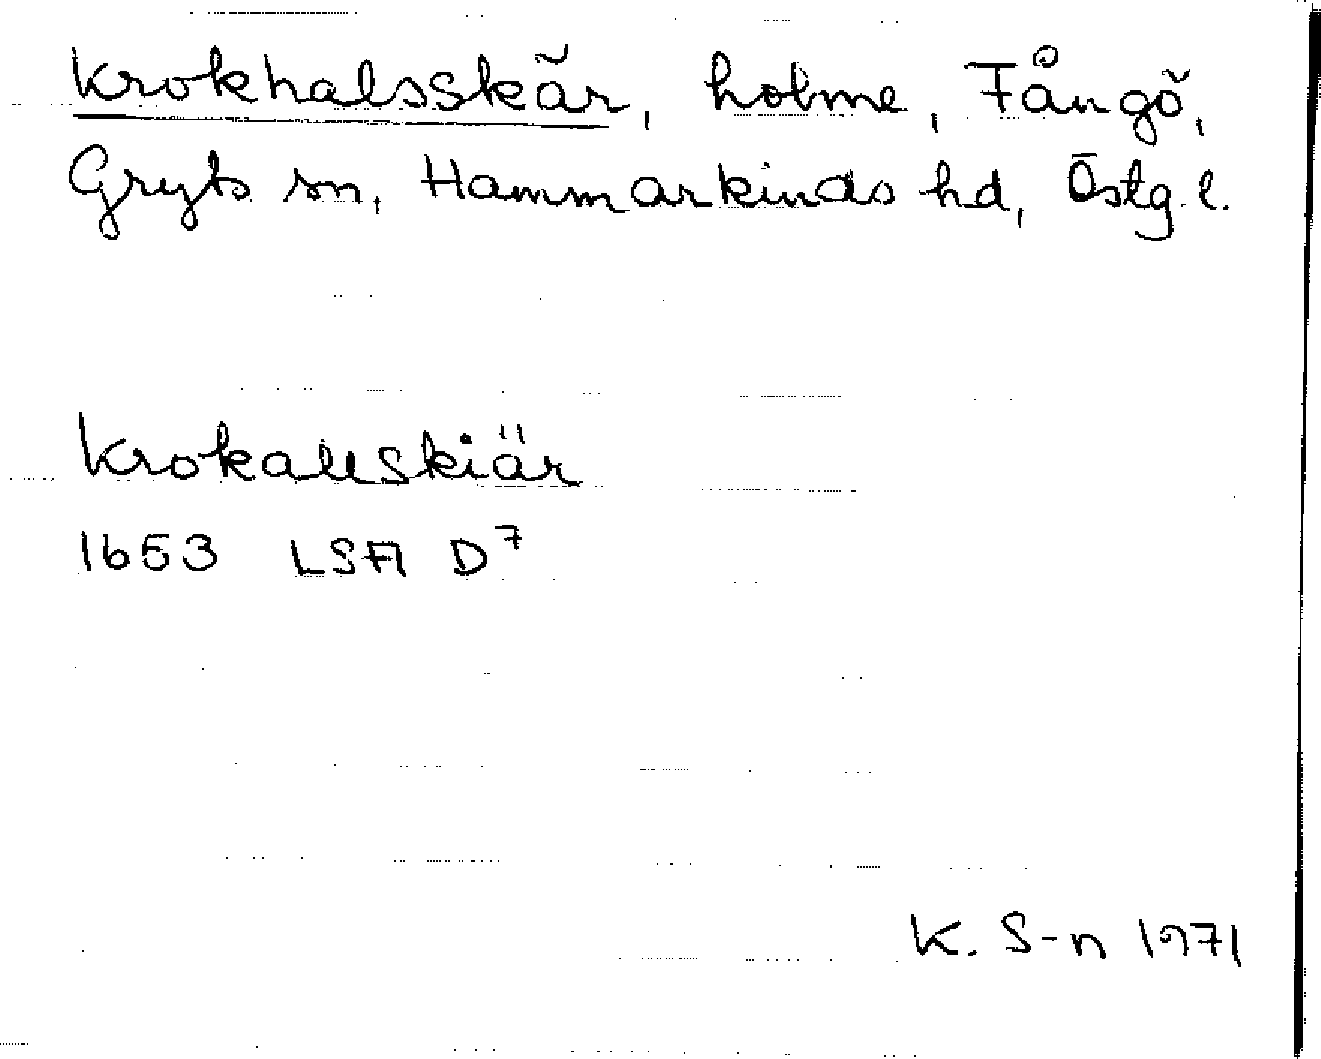 Krokhalsskär, holme, Fångö,
Gryts sn, Hammarkinds hd, Östg. l.
Krokallskiär
1653 LSA D7
K. S-n 1971